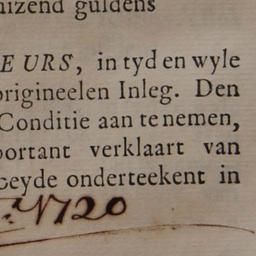 izend guldens
EURS, in tyd en wyle
origineelen Inleg. Den
Conditie aan te nemen,
portant verklaart van
beyde onderteekent in
1720